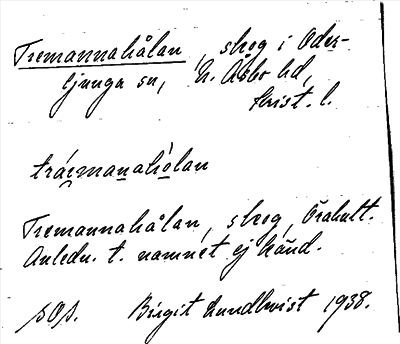 Tremannahålan, skog i Oder-
ljunga sn, N. Åsbo hd,
Krist. l.
træ̀manahólan
Tremannahålan, skog, Örahult.
Anledn. t. namnet ej känd.
sOs. Birgit Lundkvist 1938.